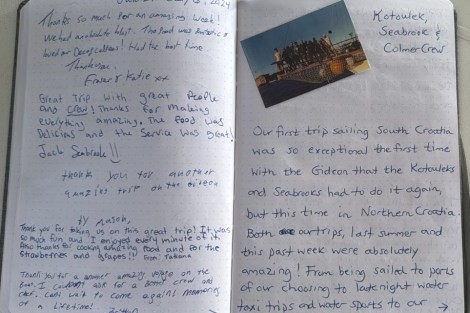 2024
Thanks so much for an amazing week!
We had an absolute blast. The food was
Had the best time.
Thank you
Fraser & Katie xx
Great Trip with great People
and crew! Thanks for making
everything amazing. The Food was
Delicias and the Service was great!
Jack Seabrook!!
thank you for another
amazing trip on the Gideon
by mason,
Thank you for taking us on this great trip! It was
so much fun and I enjoyed every minute of it.
Also thanks for cooking amazing food and for the
strawberries and grapes!! From Tatiana
Thank you for a another amazing voyage on the
Boat. I ask for a better crew and
chef. Can't wait to come again! Memories
of a lifetime!
→
Kotowlek,
Seabrook &
Colmer Crew
Our first trip sailing South Croatia
was so exceptional the first time
with the Gideon that the Kotowleks
and Seabrooks had to do it again,
but this time in Northern Croatia.
Both our trips, last summer and
this past week were absolutely
amazing! From being sailed to parts
of our choosing to late night water
taxi trips and water sports to our →